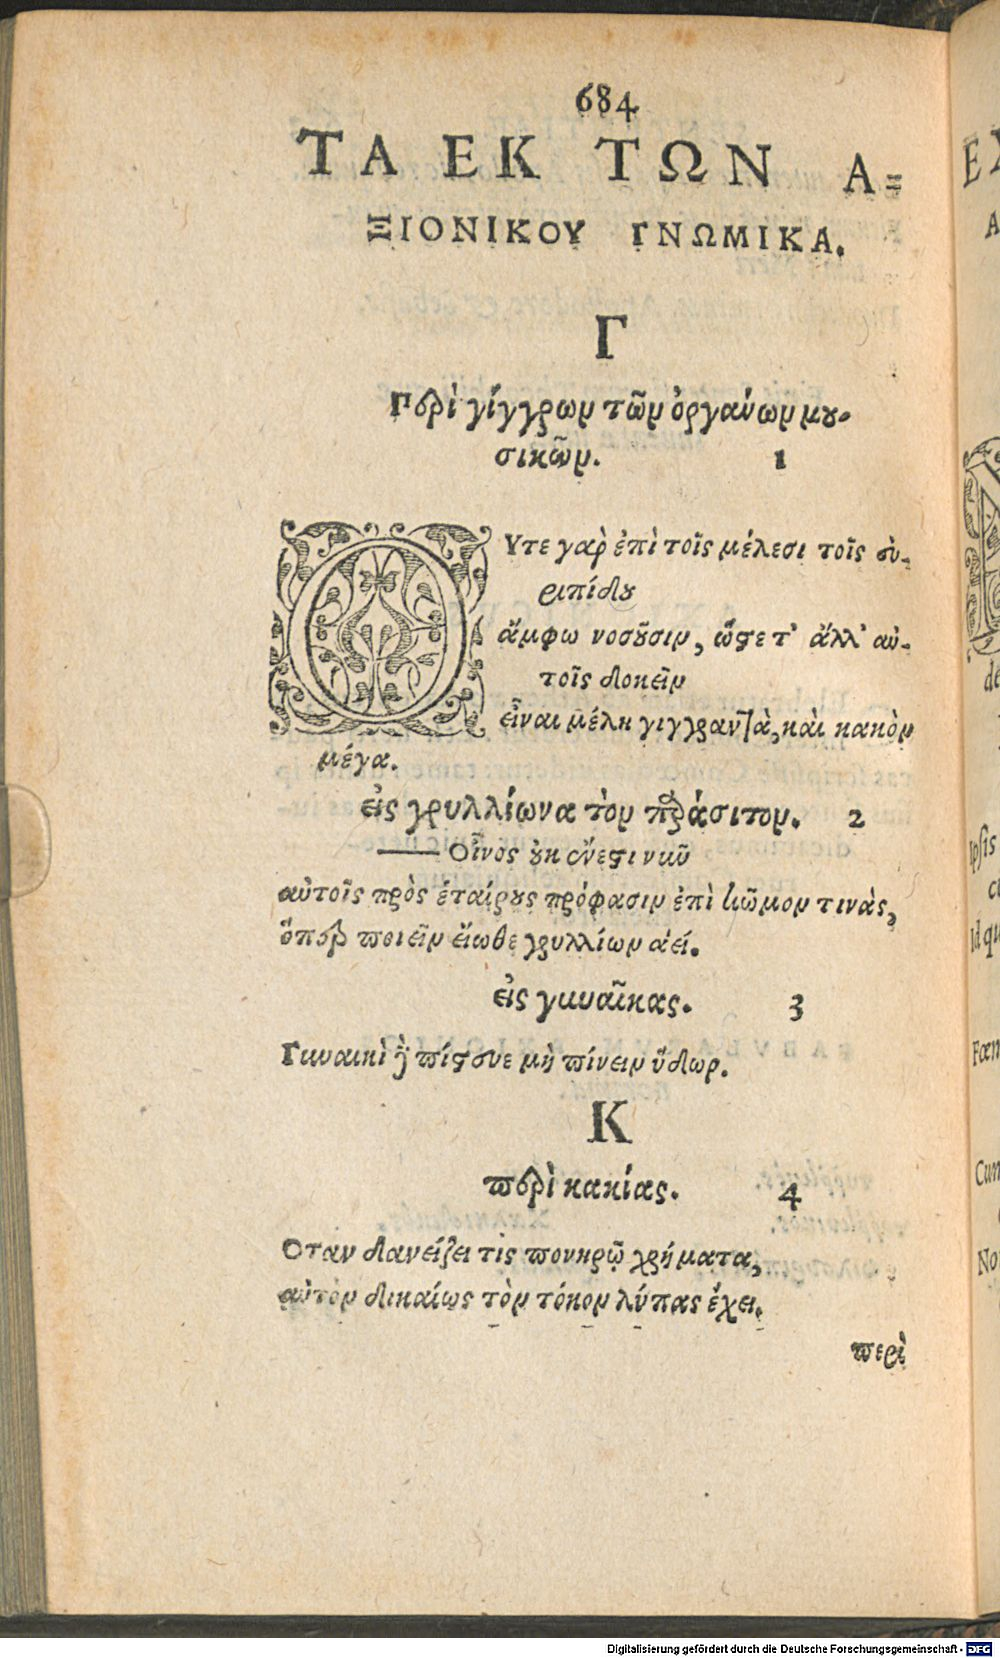 684
ΤΑ ΕΚ ΤΩΝ Α=
ΞΙΟΝΙΚΟΥ ΓΝΩΜΙΚΑ.
Γ
Περὶ γίγγρων τῶν ὀργάνων μου-
σικῶν. 1
ΟΥτε γαρ̀ ἐπὶ τοῖς μέλεσι τοῖς εὐ-
ριπίδου
ἄμφω νοσοῦσιν, ὥστε τ' ἄλλ' αὐ-
τοῖς δοκεῖν
εἶναι μέλη γιγγραντὰ, καὶ κακὸν
μέγα.
εἰς γρυλλίωνα τὸν παράσιτον. 2
— Οἶνος οὐκ ἔνεστι νκῦ
αὐτοῖς πρὸς ἑταίρους πρόφασιν ἐπὶ κῶμον τινὰς,
ὅπερ ποιεῖν εἴωθε γρυλλίων ἀεί.
εἰς γυναῖκας. 3
Γυναικὶ δὴ πίστευε μὴ πίνειν ὕδωρ.
Κ
περὶ κακίας. 4
Οταν δανείζει τὶς πονηρῷ χρήματα,
αὐτὸν δικαίως τὸν τόκον λύπας ἔχει.
περὶ
EX
A
de
Ipsis
Id qu
Fœm
Cum
No
Digitalisierung gefördert durch die Deutsche Forschungsgemeinschaft - DFG